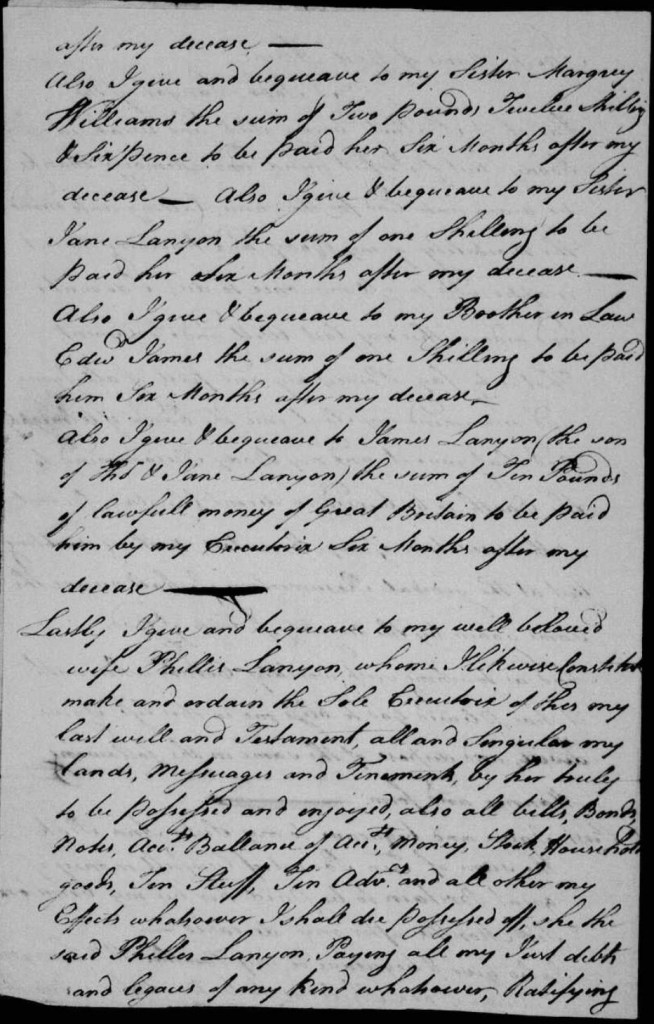 after my decease —
Also I give and bequeave to my Sister Margrey
Williams the sum of Two Pounds Twelve Shilling
& Six Pence to be paid her Six Months after my
decease — Also I give & bequeave to my Sister
Jane Lanyon the sum of one Shilling to be
paid her Six Months after my decease —
Also I give & bequeave to my Boother in Law
Edwd James the sum of one Shilling to be paid
him Six Months after my decease —
Also I give & bequeave to James Lanyon (the son
of Thos & Jane Lanyon) the sum of Ten Pounds
of lawfull money of Great Britain to be paid
him by my Executorix Six Months after my
decease —
Lastly I give and bequeave to my well beloved
wife Phillis Lanyon, whome I likewise Constitute
make and ordain the Sole Executrix of this my
last will and Testament, all and Singular my
lands, Messuages and Tinements, by her truly
to be possessed and enjoyed, also all bills, Bonds,
Notes, Accts Ballance of Accts, Money, Stock, Household
goods, Tin Stuff, Tin Advcs and all other my
Effects whatsower I shall die possessed off, she the
said Phillis Lanyon Paying all my Just debts
and legaces of any kind whatsower, Ratifying